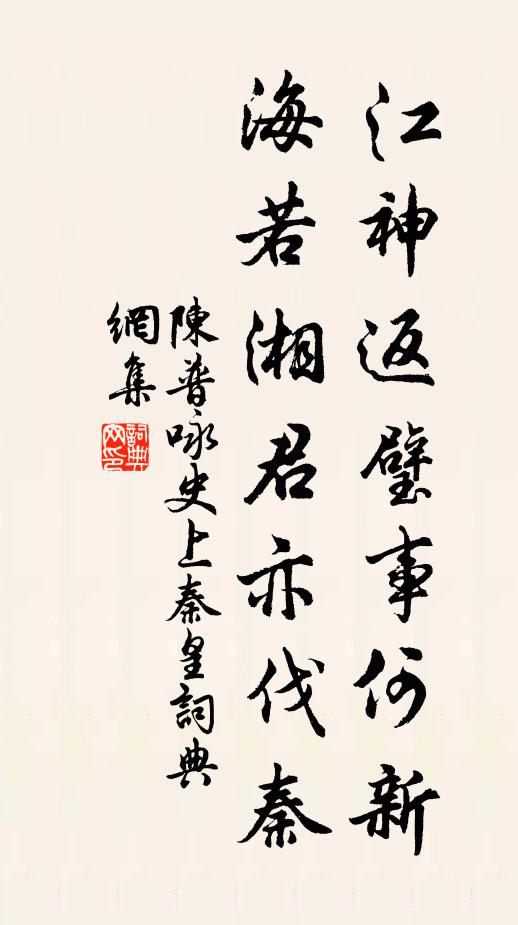 江神返璧事何新
海若湘君亦伐秦
陳普咏史上秦皇詞典
網集
詞典網印